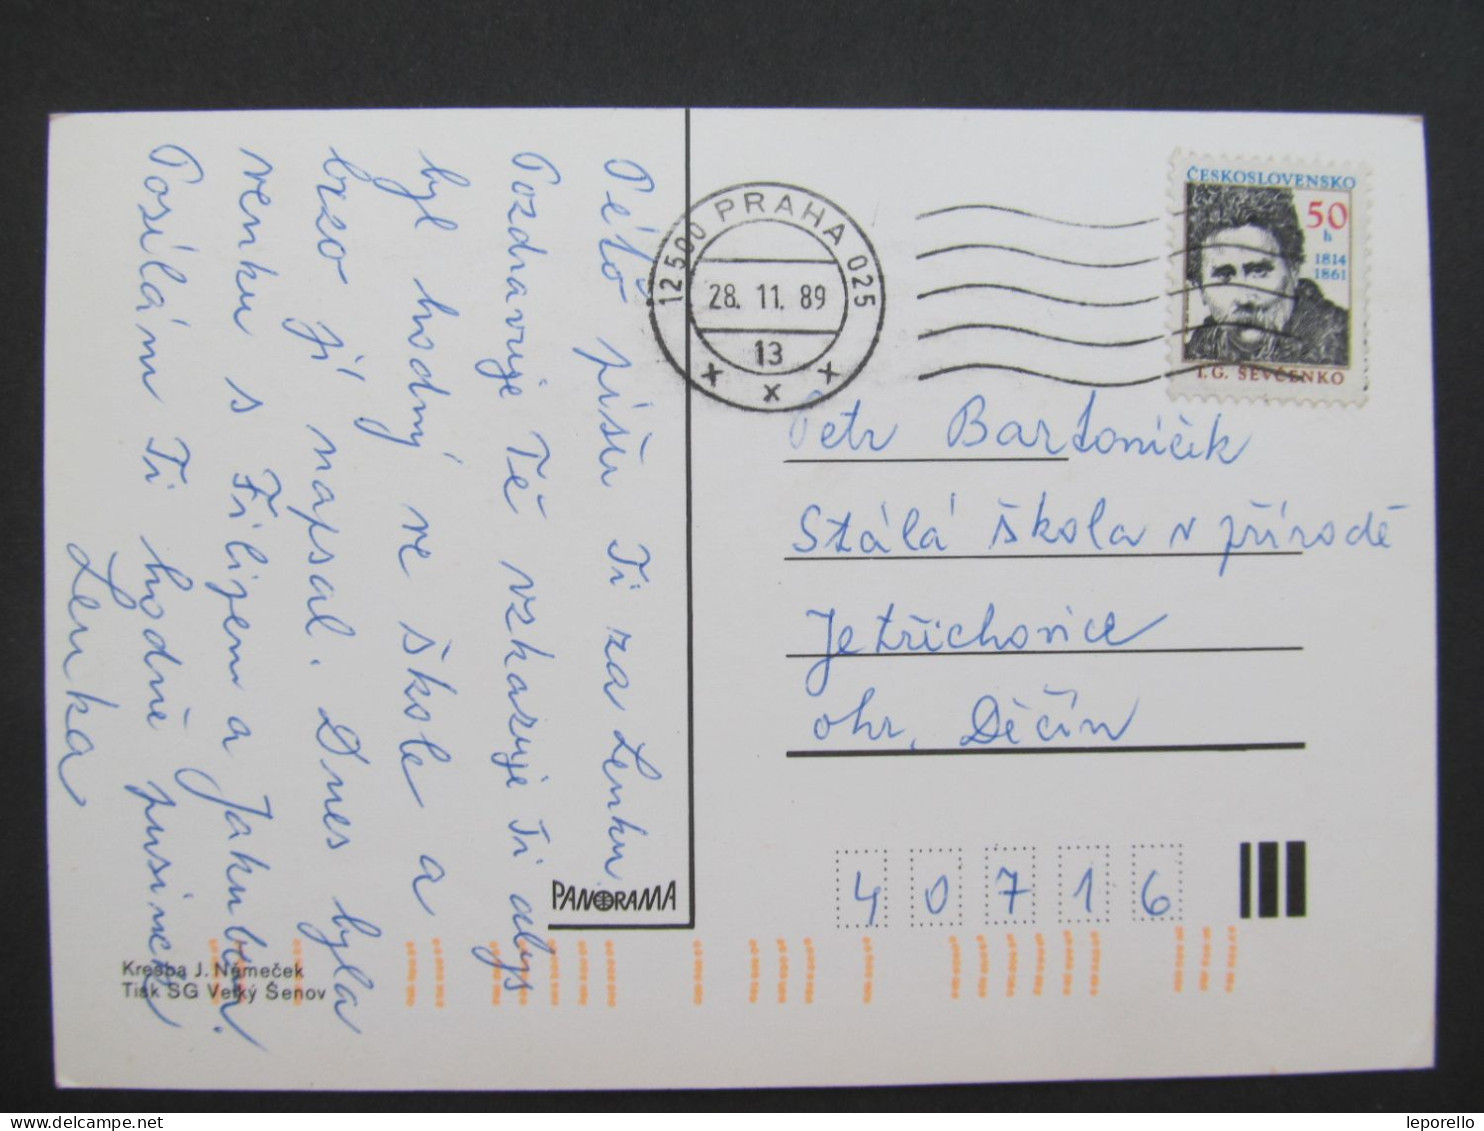 Péťo píšu Ti za Lenku.
Pozdravuje Tě vzkazuje Ti abys
byl hodný ve škole a
brzo jí napsal. Dnes byla
venku s Filipem a Jakubem.
Posílám Ti hodně pusinek
Lenka
PANORAMA
Kresba J. Němeček
Tisk SG Velký Šenov
12500 PRAHA 025
28. 11. 89
13
ČESKOSLOVENSKO
50
h
1814
1861
T.G. ŠEVČENKO
Petr Bartoníček
Stálá škola v přírodě
Jetřichovice
okr. Děčín
40716
leporello